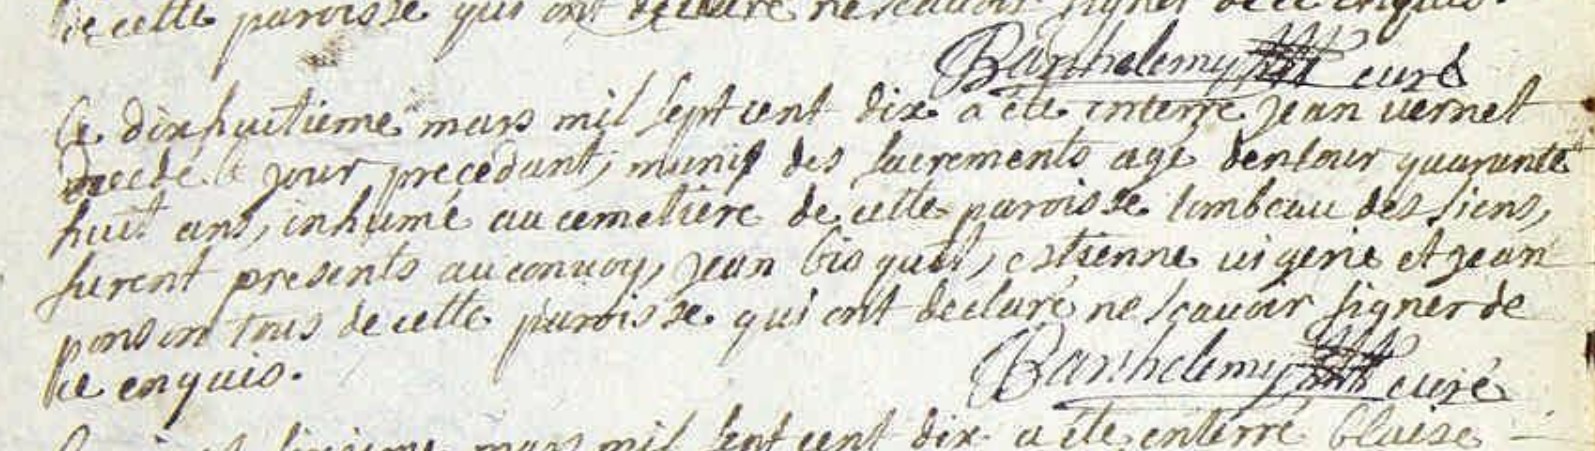 de cette paroisse qui ont declaré ne scavoir signer de ce enquis.
Barthelemy curé
Ce dixhuitieme mars mil sept cent dix a ete enterre Jean vernet
decedé le jour precedant, munis des sacrements agé denvir quarante
huit ans, inhumé au cemetiere de cette paroisse tombeau des siens,
furent presents au convoy, jean bis , estienne virgerie et jean
ponson tous de cette paroisse qui ont declaré ne scavoir signer de
ce enquis.
Barthelemy curé
mars mil sept cent dix a ete enterré blaise